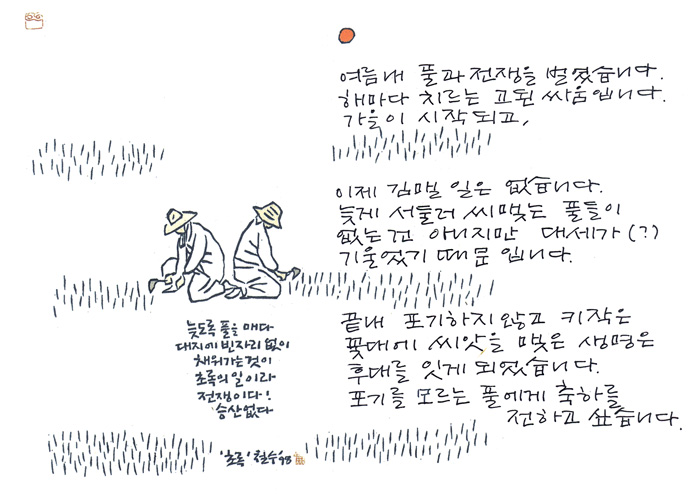 여름내 풀과 전쟁을 벌였습니다.
해마다 치르는 고된 싸움입니다.
가을이 시작되고,
이제 김맬 일은 없습니다.
늦게 서둘러 씨맺는 풀들이
없는건 아니지만 대세가(?)
기울었기 때문 입니다.
끝내 포기하지 않고 키작은
꽃대에 씨앗을 맺은 생명은
후대를 잇게 되었습니다.
포기를 모르는 풀에게 축하를
전하고 싶습니다.
늦도록 풀을 매다
대지에 빈자리 없이
채워가는 것이
초록의 일이라
전쟁이다!
승산없다
'초록' 철수 98